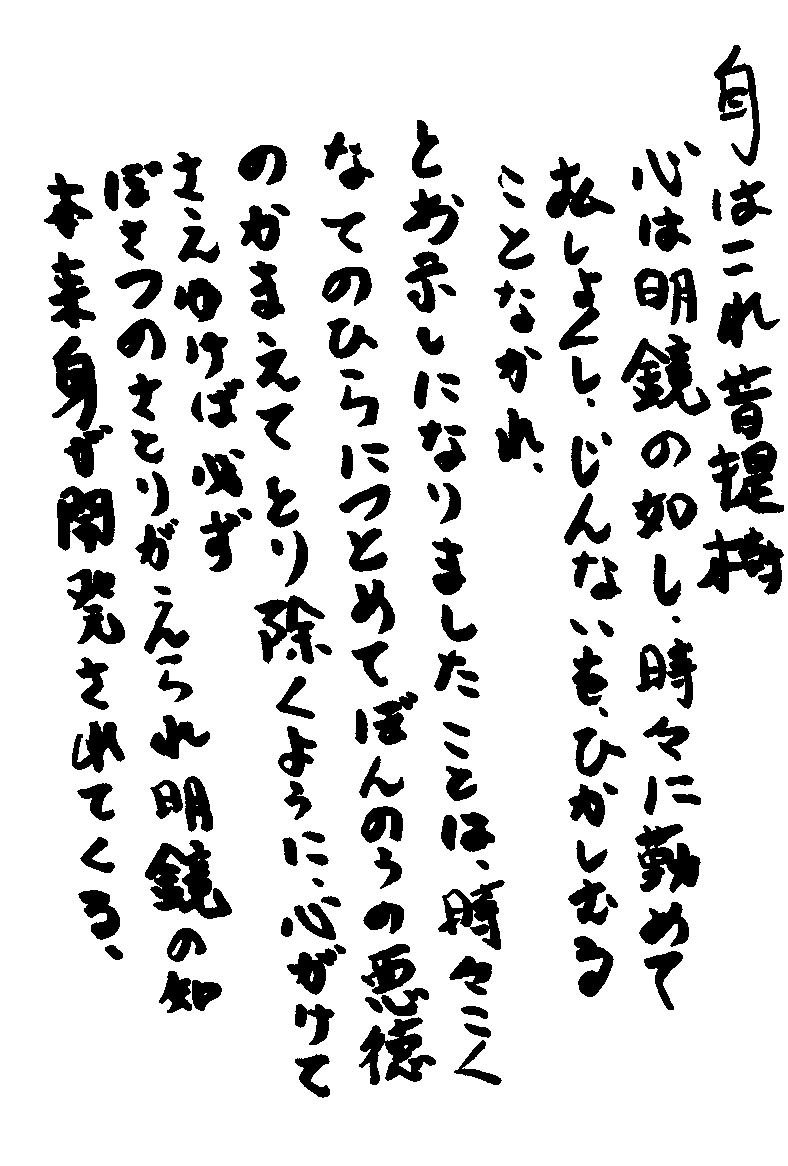 身はこれ菩提樹
心は明鏡の如し、時々に勤めて
払しよくし、じんないを、ひかしむる
ことなかれ、
とお示しになりましたことは、時々こく
なてのひらにつとめてぼんのうの悪徳
のかまえてとり除くように、心がけて
さえゆけば必ず
ぼさつのさとりがえられ明鏡の知
本来身が開発されてくる、